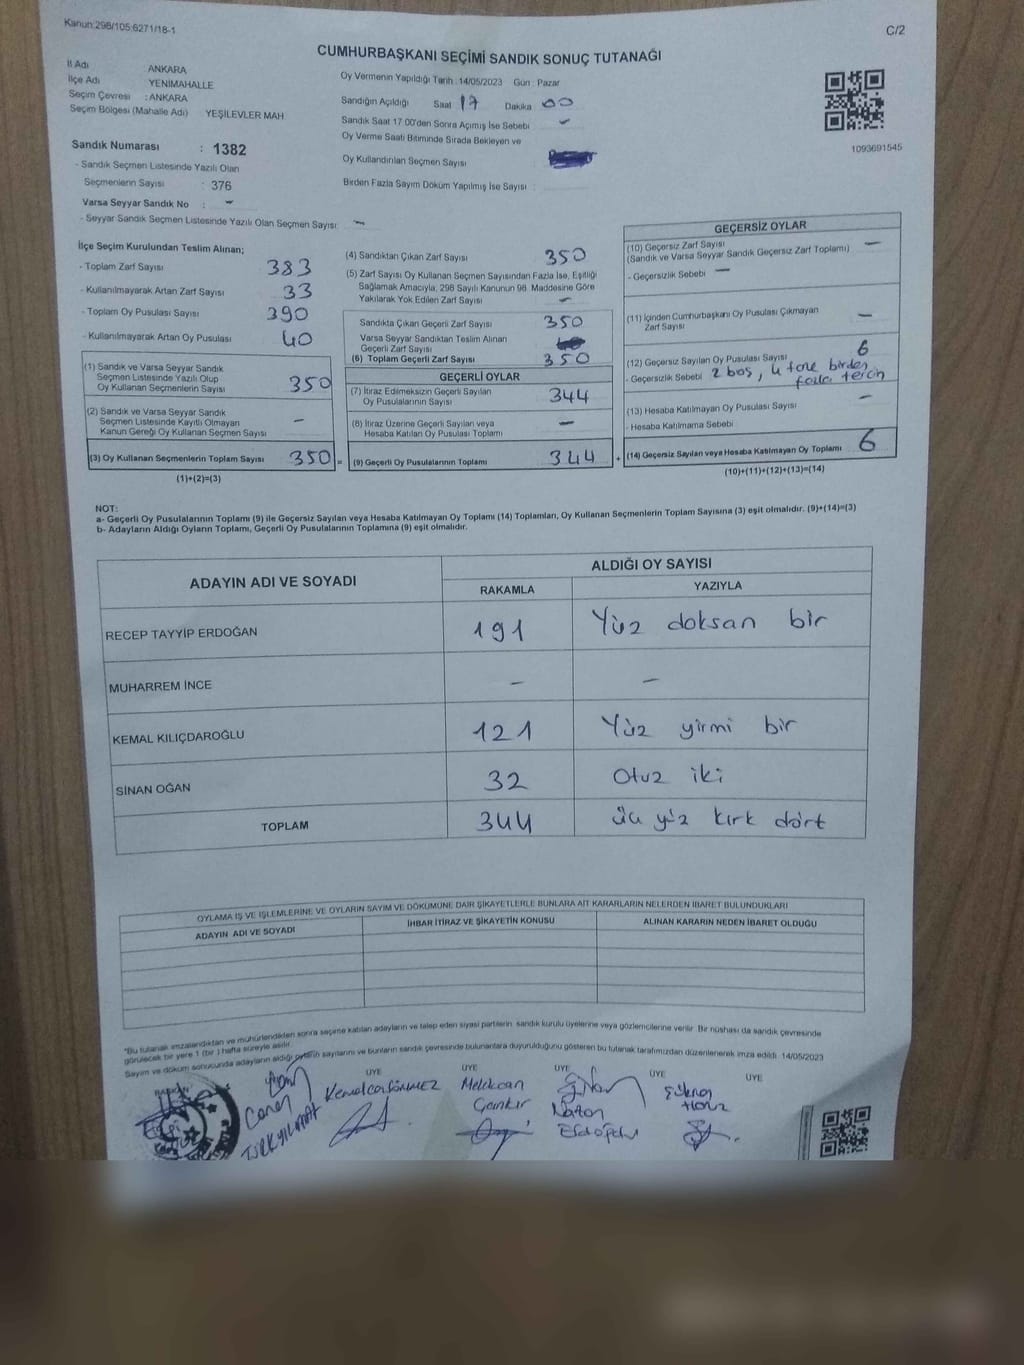 Kanun:298/105:6271/18-1
C/2
CUMHURBAŞKANI SEÇİMİ SANDIK SONUÇ TUTANAĞI
İl Adı ANKARA
İlçe Adı YENİMAHALLE
Seçim Çevresi : ANKARA
Seçim Bölgesi (Mahalle Adı) YEŞİLEVLER MAH
Sandık Numarası : 1382
- Sandık Seçmen Listesinde Yazılı Olan
Seçmenlerin Sayısı : 376
Varsa Seyyar Sandık No : -
- Seyyar Sandık Seçmen Listesinde Yazılı Olan Seçmen Sayısı: -
Oy Vermenin Yapıldığı Tarih :14/05/2023 Gün : Pazar
Sandığın Açıldığı Saat 17 Dakika 00
Sandık Saat 17:00'den Sonra Açımış İse Sebebi -
Oy Verme Saati Bitiminde Sırada Bekleyen ve
Oy Kullandırılan Seçmen Sayısı :
Birden Fazla Sayım Döküm Yapılmış İse Sayısı :
1093691545
İlçe Seçim Kurulundan Teslim Alınan;
- Toplam Zarf Sayısı 383
- Kullanılmayarak Artan Zarf Sayısı 33
- Toplam Oy Pusulası Sayısı 390
- Kullanılmayarak Artan Oy Pusulası 40
(1) Sandık ve Varsa Seyyar Sandık
Seçmen Listesinde Yazılı Olup
Oy Kullanan Seçmenlerin Sayısı 350
(2) Sandık ve Varsa Seyyar Sandık
Seçmen Listesinde Kayıtlı Olmayan
Kanun Gereği Oy Kullanan Seçmen Sayısı -
(3) Oy Kullanan Seçmenlerin Toplam Sayısı 350 =
(1)+(2)=(3)
(4) Sandıktan Çıkan Zarf Sayısı 350
(5) Zarf Sayısı Oy Kullanan Seçmen Sayısından Fazla İse, Eşitliği
Sağlamak Amacıyla, 298 Sayılı Kanunun 98. Maddesine Göre
Yakılarak Yok Edilen Zarf Sayısı -
Sandıkta Çıkan Geçerli Zarf Sayısı 350
Varsa Seyyar Sandıktan Teslim Alınan
Geçerli Zarf Sayısı
(6) Toplam Geçerli Zarf Sayısı 350
GEÇERLİ OYLAR
(7) İtiraz Edilmeksizin Geçerli Sayılan
Oy Pusulalarının Sayısı 344
(8) İtiraz Üzerine Geçerli Sayılan veya
Hesaba Katılan Oy Pusulası Toplamı -
(9) Geçerli Oy Pusulalarının Toplamı 344 +
GEÇERSİZ OYLAR
(10) Geçersiz Zarf Sayısı -
(Sandık ve Varsa Seyyar Sandık Geçersiz Zarf Toplamı)
- Geçersizlik Sebebi -
(11) İçinden Cumhurbaşkanı Oy Pusulası Çıkmayan
Zarf Sayısı -
(12) Geçersiz Sayılan Oy Pusulası Sayısı 6
- Geçersizlik Sebebi 2 boş, 4 tane birden
fazla tercih
(13) Hesaba Katılmayan Oy Pusulası Sayısı -
- Hesaba Katılmama Sebebi
(14) Geçersiz Sayılan veya Hesaba Katılmayan Oy Toplamı 6
(10)+(11)+(12)+(13)=(14)
NOT:
a- Geçerli Oy Pusulalarının Toplamı (9) ile Geçersiz Sayılan veya Hesaba Katılmayan Oy Toplamı (14) Toplamları, Oy Kullanan Seçmenlerin Toplam Sayısına (3) eşit olmalıdır. (9)+(14)=(3)
b- Adayların Aldığı Oyların Toplamı, Geçerli Oy Pusulalarının Toplamına (9) eşit olmalıdır.
ADAYIN ADI VE SOYADI
ALDIĞI OY SAYISI
RAKAMLA YAZIYLA
RECEP TAYYİP ERDOĞAN 191 Yüz doksan bir
MUHARREM İNCE - -
KEMAL KILIÇDAROĞLU 121 Yüz yirmi bir
SİNAN OĞAN 32 Otuz iki
TOPLAM 344 üç yüz kırk dört
OYLAMA İŞ VE İŞLEMLERİNE VE OYLARIN SAYIM VE DÖKÜMÜNE DAİR ŞİKAYETLERLE BUNLARA AİT KARARLARIN NELERDEN İBARET BULUNDUKLARI
ADAYIN ADI VE SOYADI İHBAR İTİRAZ VE ŞİKAYETİN KONUSU ALINAN KARARIN NEDEN İBARET OLDUĞU
"Bu tutanak imzalandıktan ve mühürlendikten sonra seçime katılan adayların ve talep eden siyasi partilerin sandık kurulu üyelerine veya gözlemcilerine verilir. Bir nüshası da sandık çevresinde
görülecek bir yere 1 (bir ) hafta süreyle asılır.
Sayım ve döküm sonucunda adayların aldığı oyların sayılarını ve bunların sandık çevresinde bulunanlara duyurulduğunu gösteren bu tutanak tarafımızdan düzenlenerek imza edildi. 14/05/2023
BAŞKAN ÜYE ÜYE ÜYE ÜYE ÜYE
Caner
TÜRKYILMAZ